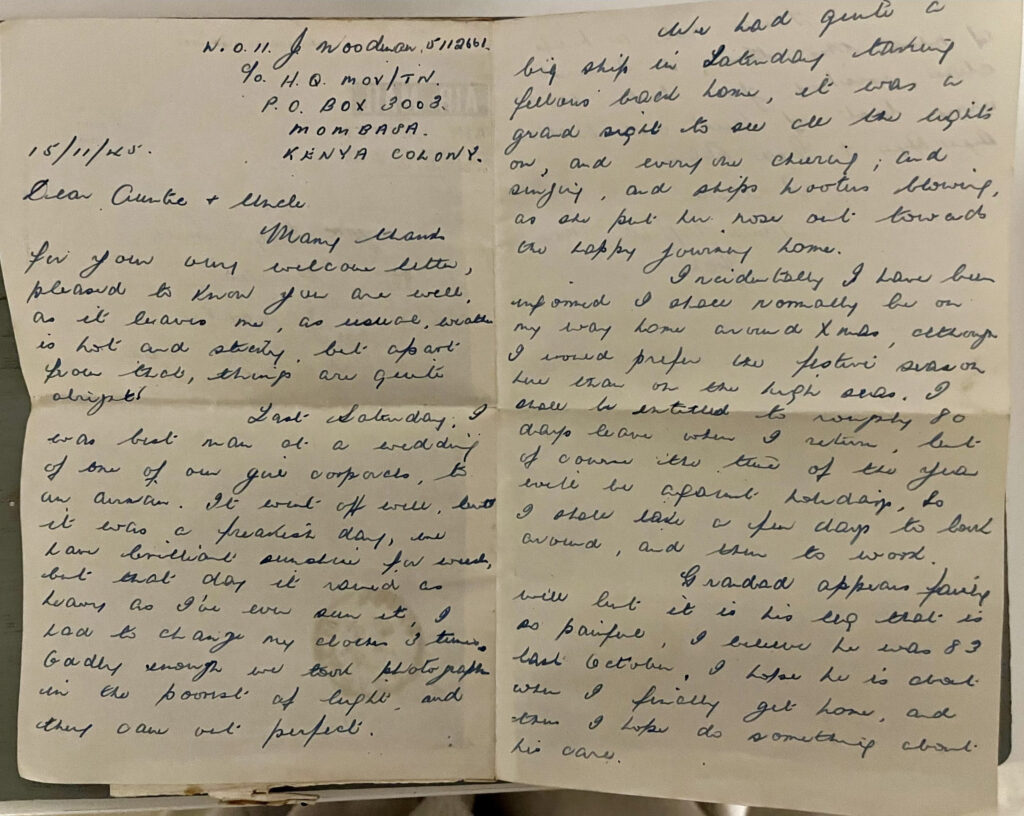 W.O.II. J Woodman, 5112661.
C/o. H.Q. MOV/TN.
P.O. BOX 3003.
MOMBASA.
15/11/45.
KENYA COLONY.
Dear Auntie + Uncle
Many thanks
for your very welcome letter,
pleased to know you are well,
as it leaves me, as usual, weather
is hot and sticky, but apart
from that, things are quite
alright!
Last Saturday, I
was best man at a wedding
of one of our girl corporals, to
an airman. It went off well, but
it was a freakish day, we
have brilliant sunshine for weeks,
but that day it rained as
heavy as I've ever seen it, I
had to change my clothes 3 times,
Oddly enough we took photographs
in the poorest of light, and
they came out perfect.
We had quite a
big ship in Saturday taking
fellows back home, it was a
grand sight to see all the lights
on, and everyone cheering, and
singing, and ships hooters blowing,
as she put her nose out towards
the happy journey home.
Incidentally I have been
informed I shall normally be on
my way home around Xmas, although
I would prefer the festive season
here than on the high seas. I
shall be entitled to roughly 80
days leave when I return, but
of course the time of the year
will be against holidays, so
I shall take a few days to look
around, and then to work.
Grandad appears fairly
well but it is his leg that is
so painful, I believe he was 83
last October, I hope he is about
when I finally get home, and
then I hope do something about
his care.